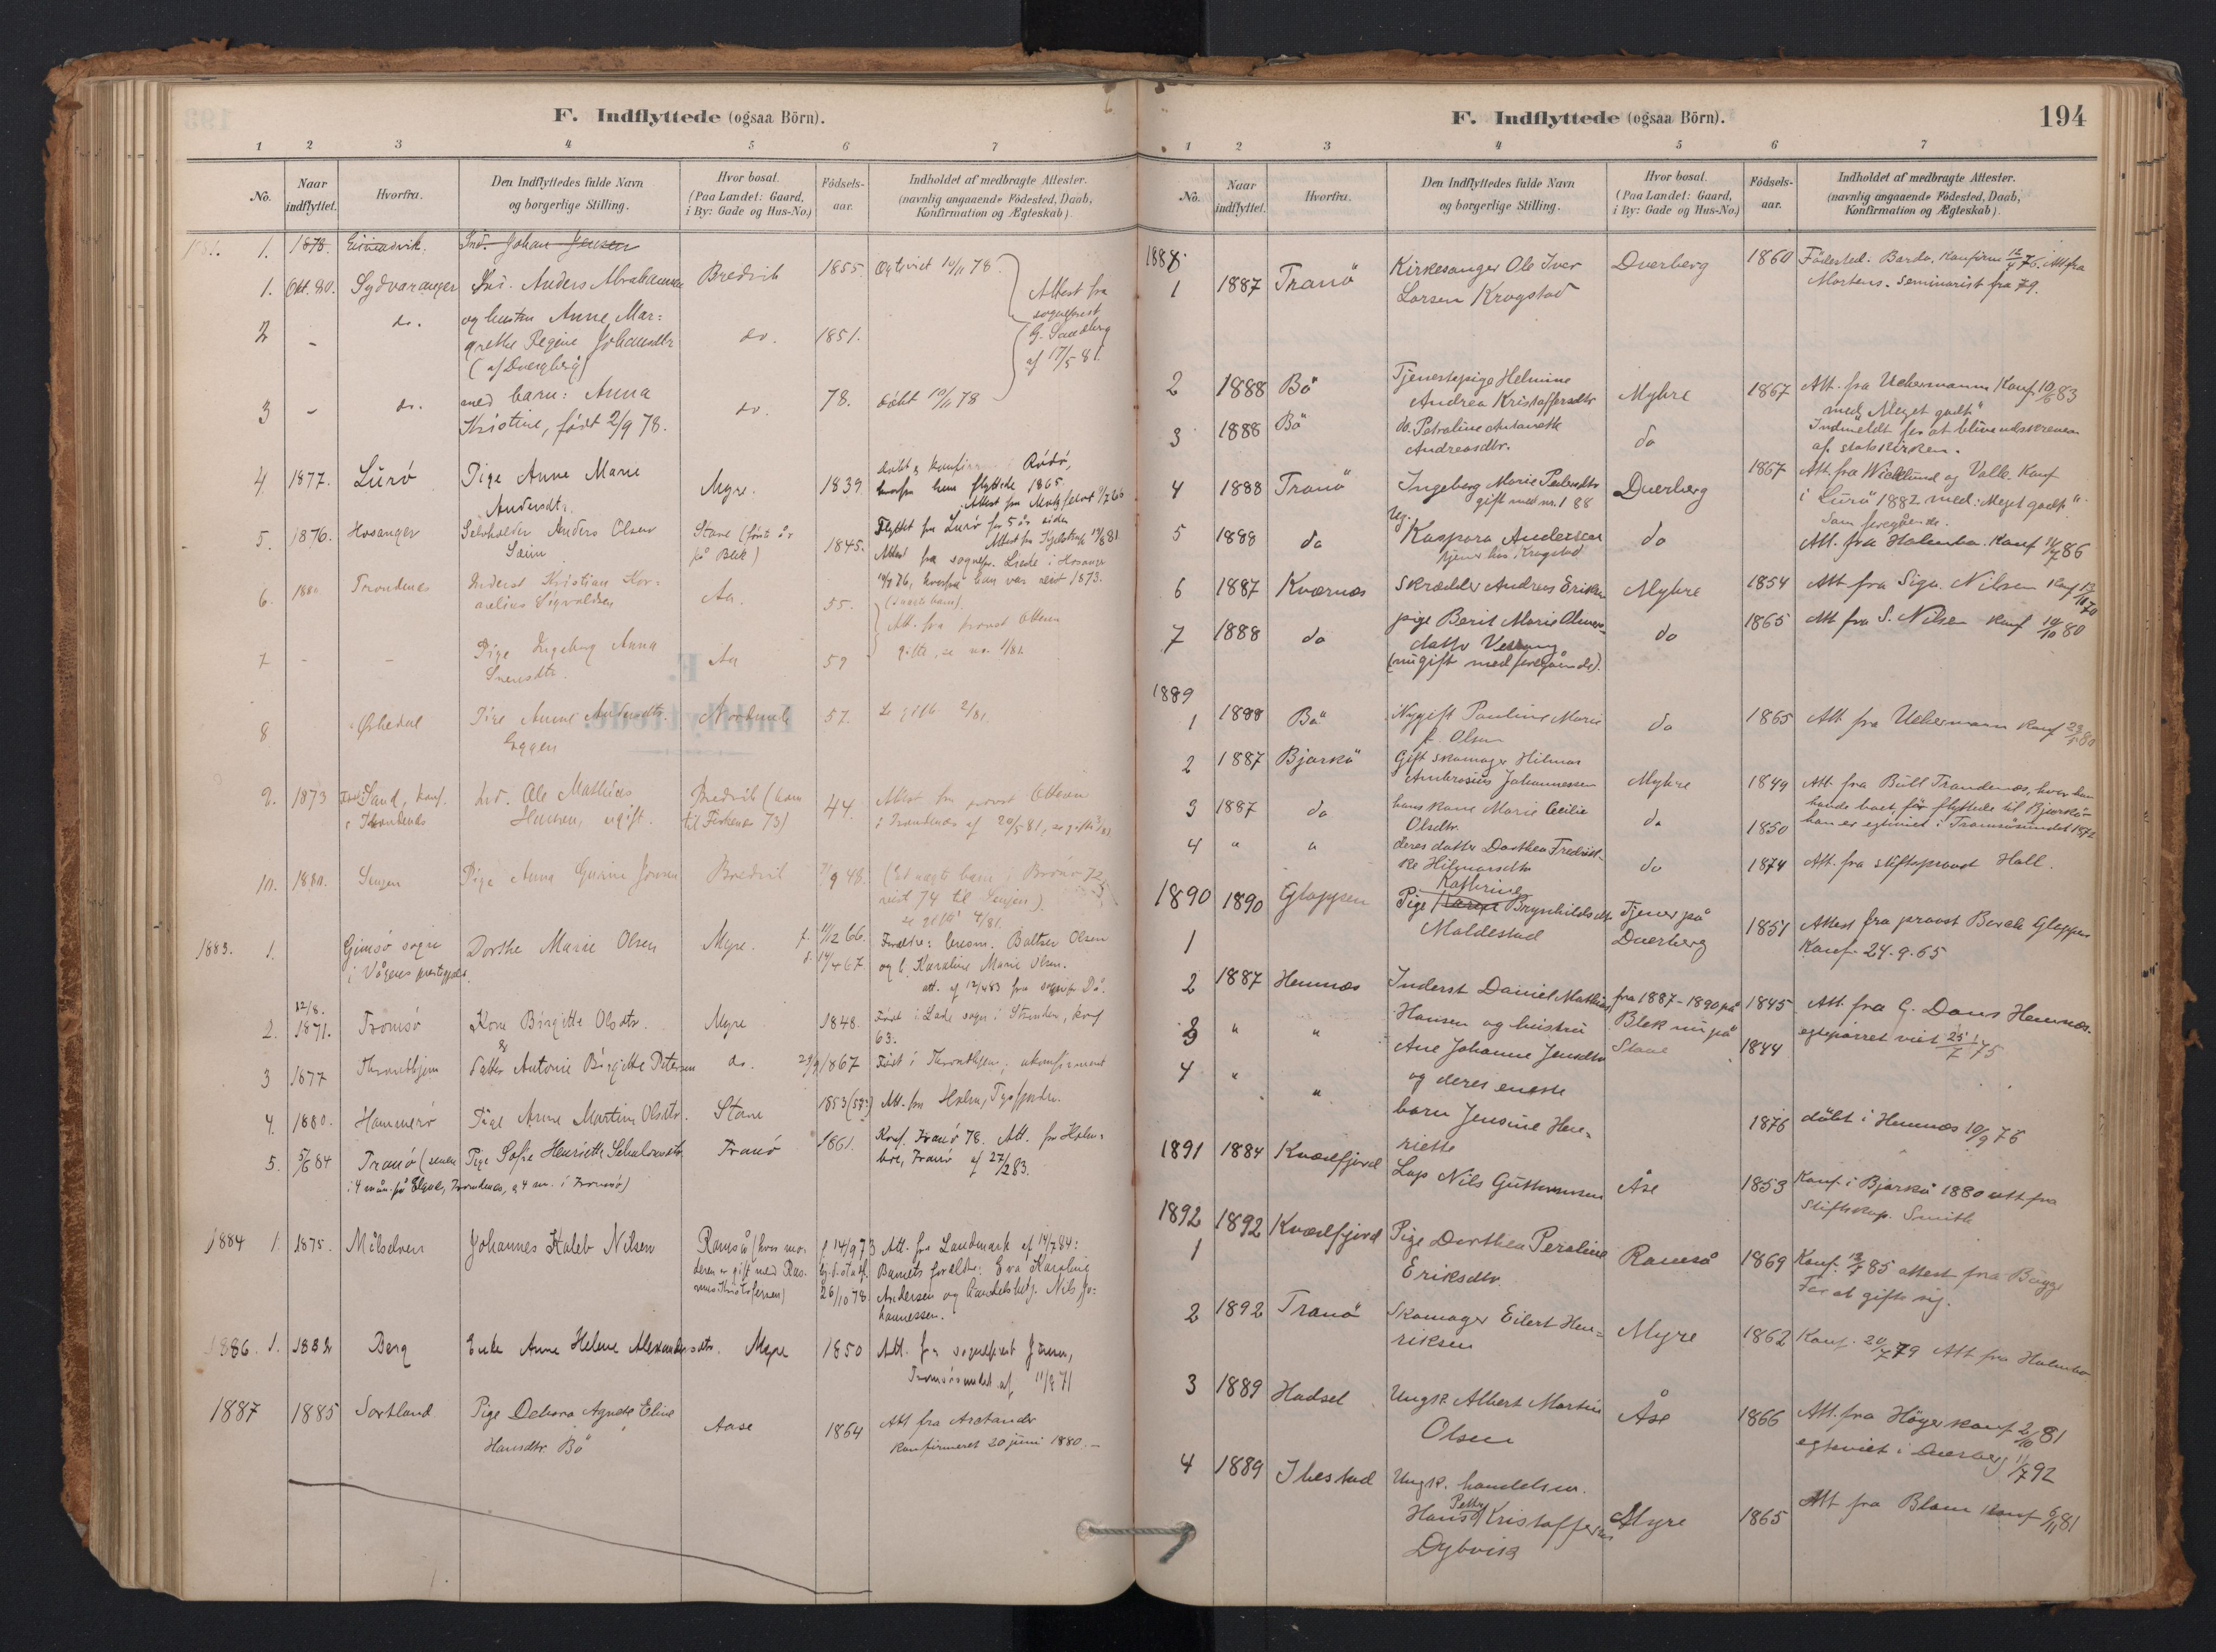 F. Indflyttede (ogsaa Börn).
1 2 3 4 5 6 7
No. Naar indflyttet. Hvorfra. Den Indflyttedes fulde Navn og borgerlige Stilling. Hvor bosat. (Paa Landet: Gaard, i By: Gade og Hus-No.) Födsels-aar. Indholdet af medbragte Attester. (navnlig angaaende Födested, Daab, Konfirmation og Ægteskab).
1. 1878. Ind. Johan Jensen
1. Okt. 80. Sydvaranger Ind. Anders Abrahamsen Bredvik 1855. Egteviet 10/11 78.
Attest fra
sogneprest
G. Sandberg
af 17/5 81.
2 - do. og hustru Anne Mar=
grethe Regine Johansdtr do. 1851.
(af Dvergberg)
3 - do. med barn: Anna do. 78. döbt 10/11 78
Kristine, født 2/9 78.
4 1877. Lurø Pige Anne Marie Myre. 1839. Rödö,
Andersdtr. flyttede 1865.
5. 1876. Hosanger Selvholder Anders Olsen Stave (förste år 1845. Flyttet fra Lurø for 5 år siden
på Blek) Attest fra sognepr. i Hosanger
hvorfra han var reist 1873.
6. 1880 Trondenes Inderst Kristian Kor=
nelius Sigvaldsen Aa. 55. (uægte barn).
Att. fra provst Ottesen
7 - - Pige Ingeborg Anna Aa 59 gifte, se no. 1/81.
8 Pige Anne Andersdtr. 57. Se gifte 2/81.
Eggen
9. 1873 Sand, konf. Ind. Ole Mathias Bredvik (kom 44. Attest fra provst Ottesen
i Trondenes Hansen, ugift. til Fiskenes 73) i Trondenes af 20/5 81, se gifte 3/81
10. 1880. Senjen Pige Anna Jensen Bredvik 7/9 48. (Et uægte barn i
reist 74 til Senjen).
se gifte 4/81.
1883. 1. Gimsö sogn Dorthe Marie Olsen Myre. f. 11/2 66. Forældre: Baltser Olsen
i Vågens prestegjeld. d. 14/4 67. og h. Karoline Marie Olsen.
att. af 12/4 83 fra sognepr. Dö.
2. 12/8. 1871. Tromsö Kone Birgitte Olsdtr. Myre 1848. Født i Lade sogn i Strinden, konf
63.
3 1877 Throndhjem Datter Antonie Birgitte Petersen do. 29/9 1867 Født i Throndhjem; ukonfirmeret
4. 1880. Hammerö Pige Anne Martine Olsdtr. Stave 1853 (58?) Att. fra Holm, Tysfjorden.
5. 5/6 84 Tranö (senere Pige Sofie Henriette Tranö 1861. Konf. Tranö 78. Att. fra Holm=
i 4 mån. på Elgnes, Trondenes, og 4 m. i Tromsö) boe, Tranö af 27/2 83.
1884 1. 1875. Målselven Johannes Kaleb Nilsen Ramså (hvor mo= f 14/9 73 Att. fra Landmark af 14/7 84:
deren er gift med Ras= Barnets forældre: Eva Karoline
mus Kristoffersen) 26/10 78 Andersen og handelsbetj. Nils Jo=
hannessen.
1886. 1. 1882 Berg Enke Anne Helene Alexandersdtr. Myre 1850 Att. fra sogneprest
Tromsösundet af 11/8 71
1887 1885 Sortland Pige Debora Agnete Eline Aase 1864 Att fra
Hansdtr Bö konfirmeret 20 juni 1880.-
F. Indflyttede (ogsaa Börn). 194
1 2 3 4 5 6 7
No. Naar indflyttet. Hvorfra. Den Indflyttedes fulde Navn og borgerlige Stilling. Hvor bosat. (Paa Landet: Gaard, i By: Gade og Hus-No.) Födsels-aar. Indholdet af medbragte Attester. (navnlig angaaende Födested, Daab, Konfirmation og Ægteskab).
1888.
1 1887 Tranö Kirkesanger Ole Iver Dverberg 1860 Födested. Bardo. Konfirm 12/7 76. Att fra
Larsen Krogstad Mortens. Seminarist fra 79.
2 1888 Bö Tjenestepige Helmine Myhre 1867 Att. fra Uchermann Konf 10/6 83
Andrea Kristoffersdtr med "Meget godt"
3 1888 Bö do. Petroline Antonette do Indmeldt for at blive udskreven
Andreasdtr. af statskirken.
4 1888 Tranö Ingeborg Marie Pedersdtr Dverberg 1867 Att. fra Wicklund og Valle. Konf
gift med nr. 1 88 i Lurö 1882 med: "Meget godt".
Som foregående.
5 1888 do Ug. Kaspara Andersen do Att. fra Holmboe. Konf 11/7 86
tjener hos Krogstad
6 1887 Kvernæs Skrædder Andreas Eriksen Myhre 1854 Att fra Sign. Nilsen Konf 13/11 70
7 1888 do pige Berit Marie do 1865 Att fra S. Nilsen Konf 10/10 80
datter
(nu gift med foregående).
1889
1 1888 Bö Nygift Pauline Marie do 1865 Att fra Uchermann Konf 23/5 80
f. Olsen
2 1887 Bjarkö Gift skomager Hilmar Myhre 1849 Att. fra Bull Trondenes, hvor han
Ambrosius Johannessen havde boet før flyttede til Bjarkö-
3 1887 do hans kone Marie Cecilie do 1850 han er egteviet i Tromsösundet 1872
Olsdtr.
4 " " deres datter Dorthea Fredrik= do 1874 Att. fra stiftsprovst Hall.
ke Hilmarsdtr
1890 1890 Gloppen Pige Karen Kathrine Brynhildsdtr Tjener på 1851 Attest fra provst Gloppen
1 Moldestad Dverberg Konf. 24.9.65
2 1887 Hemnæs Inderst Daniel Mathias fra 1887-1890 på 1845 Att. fra G. Dans Hemnæs.
3 " " Hansen og hustru Blek nu på egteparret viet 25/7 75
Ane Johanne Jensdtr Stave 1844
4 " " og deres eneste
barn Jensine Hen= 1876 döbt i Hemnæs 10/9 76
riette
1891 1884 Kvædfjord Lap Nils Guttormsen Åse 1853 Konf. i Bjarkö 1880 att fra
Stiftskap. Smith
1892
1 1892 Kvædfjord Pige Dorthea Peroline Ramså 1869 Konf. 85 attest fra Bugge
Eriksdtr. For at gifte sig.
2 1892 Tranö Skomager Eilert Hen= Myre 1862 Konf. 20/7 79 Att fra Holmboe
riksen
3 1889 Hadsel Ungk Albert Martin Åse 1866 Att. fra Höyer konf 2/10 81
Olsen egteviet i Dverberg 11/7 92
4 1889 Ibestad Ungk. handelsm.
Hans Petter Kristoffersen Myre 1865 Att fra Blom Konf 6/11 81
Dybvik